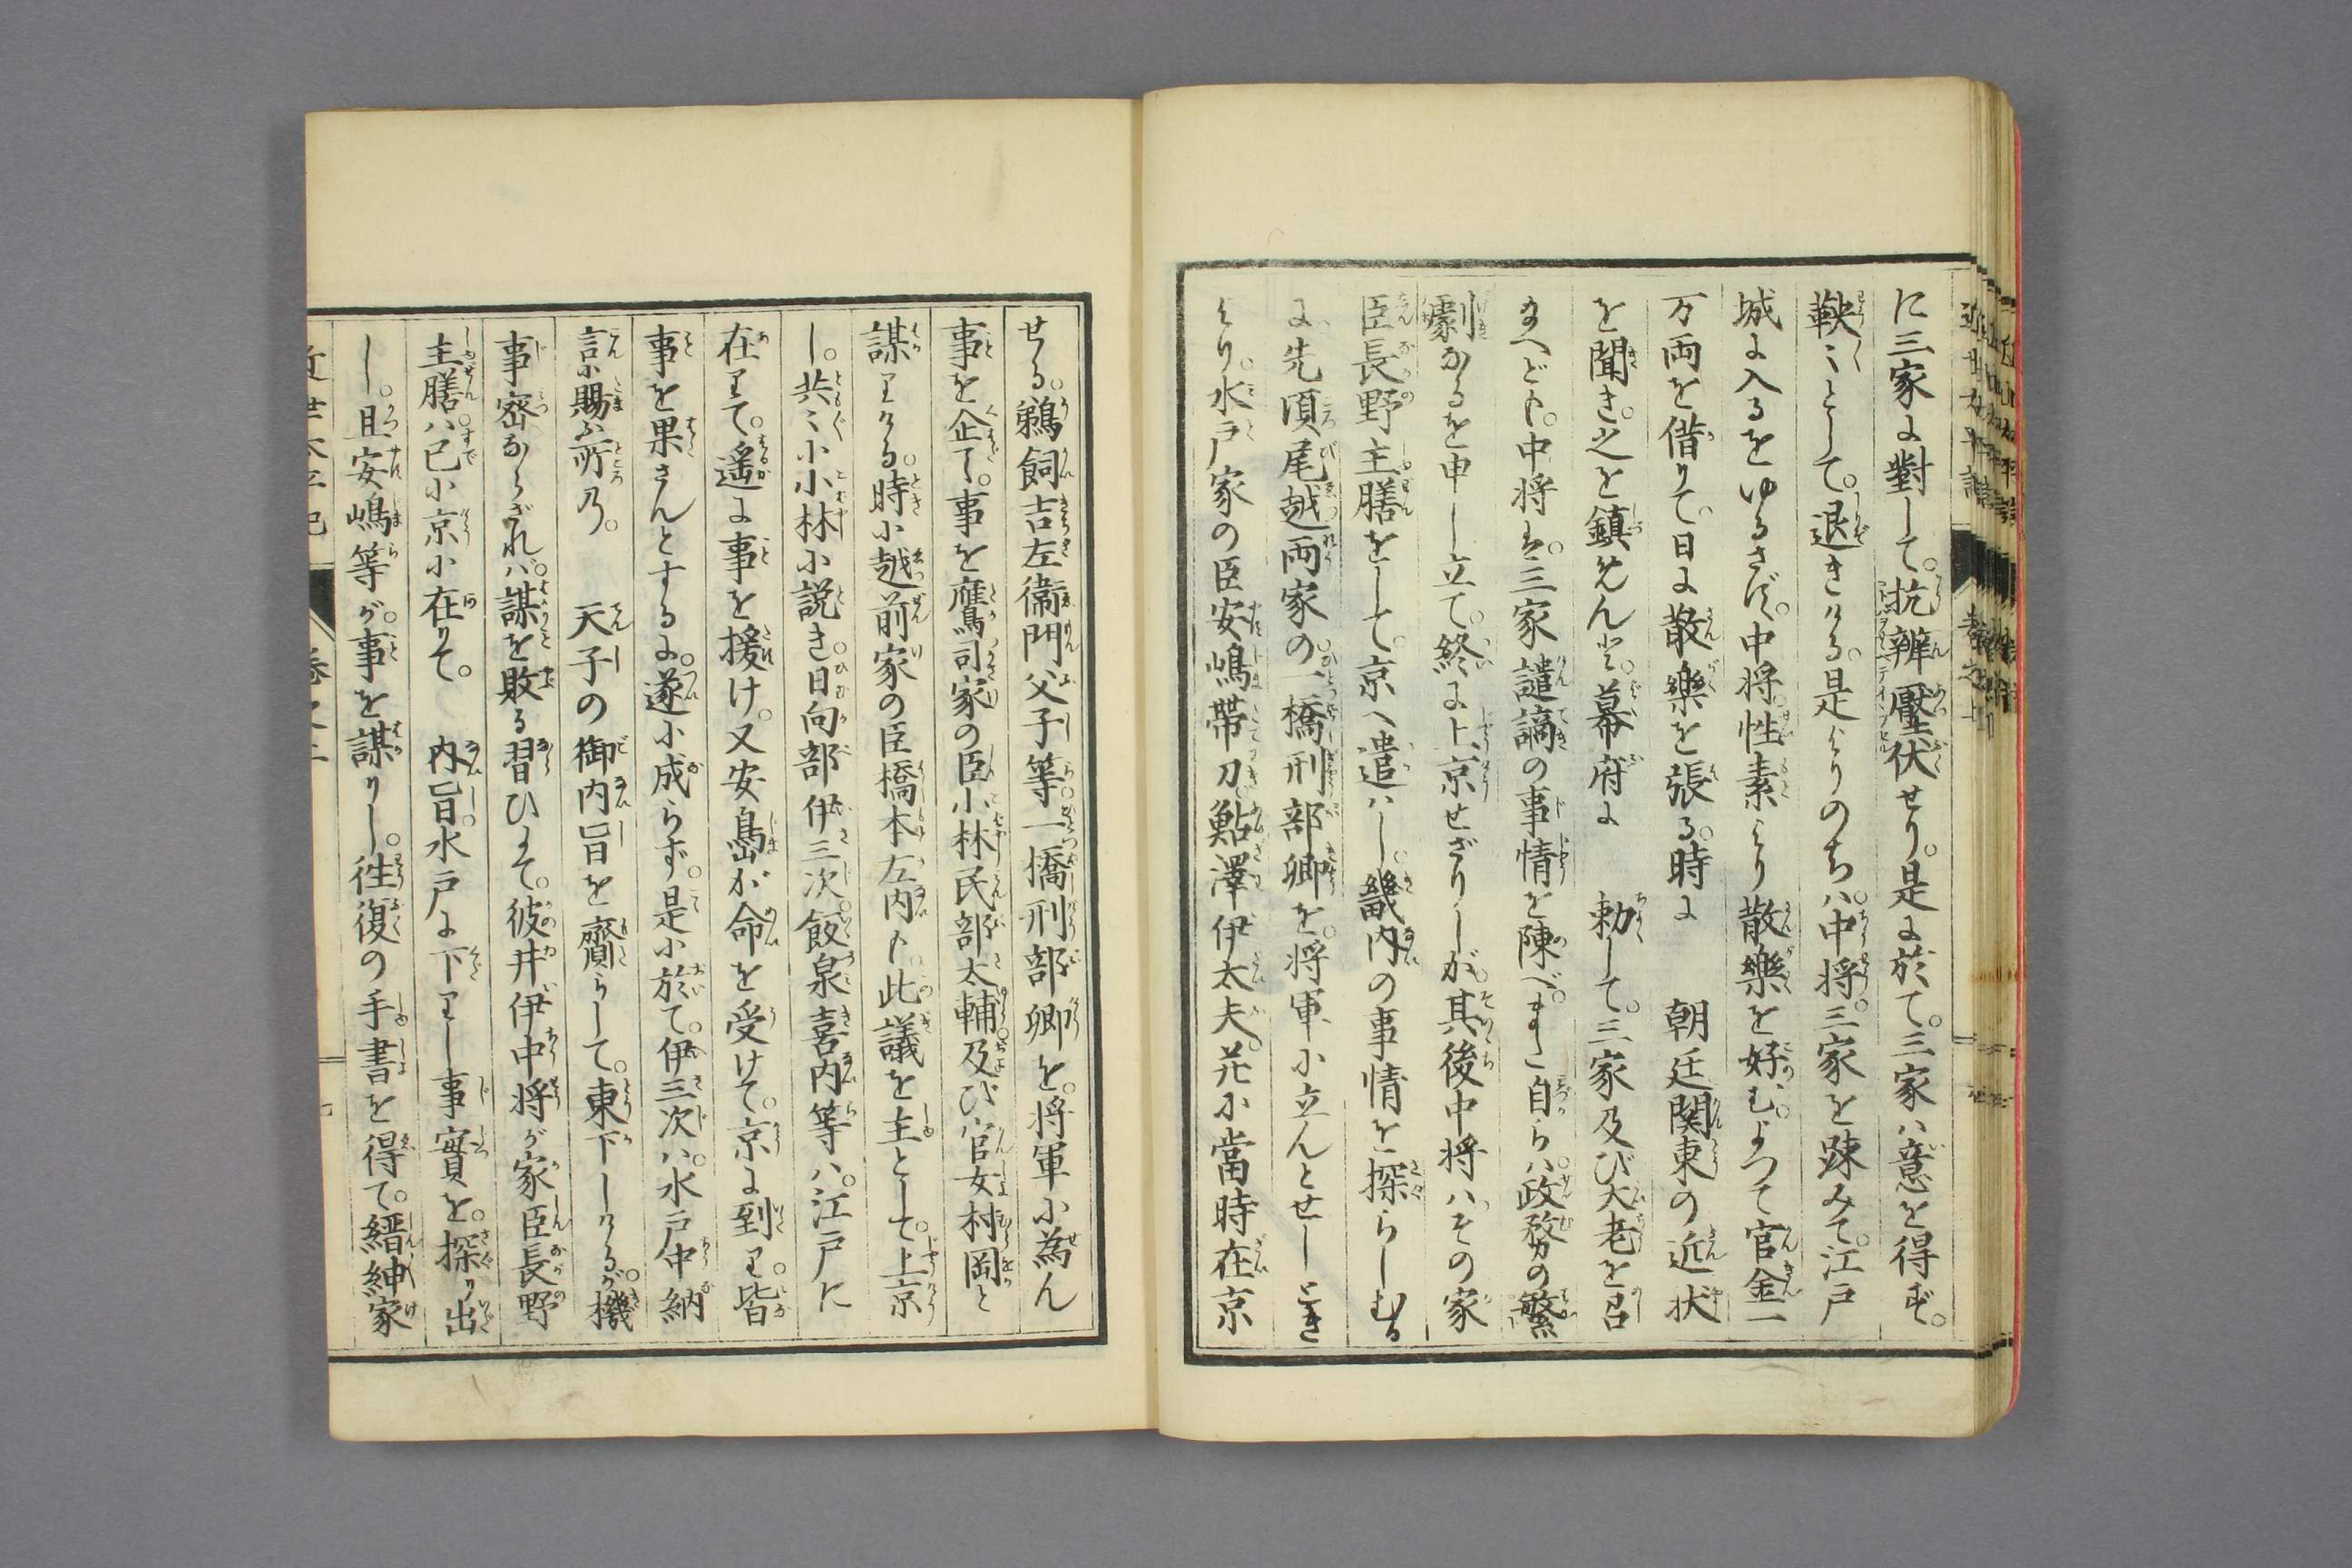 に三家に對して。抗辨壓伏せり。是に於て。三家ハ意を得ず。
鞅々として。退きける。是よりのち。ハ中将。三家を疎みて。江戸
城に入るをゆるさず。中将。性素より散樂を好む。よつて官金一
万両を借りて。日に散樂を張る。時に　朝廷関東の近状
を聞き。之を鎮せんと。幕府に　勅して。三家及び大老を召
給へども。中将ハ。三家譴謫の事情を陳べ。また自らハ。政務の繁
劇なるを申し立て。終に上京せざりしが。其後中将ハその家
臣長野主膳をして。京へ遣ハし。畿内の事情を探らしむる
に。先頃尾越両家の。一橋刑部卿を。将軍に立んとせしとき
より。水戸家の臣安嶋帯刀。鮎澤伊太夫。并に當時在京
せる。鵜飼吉左衞門父子等。一橋刑部卿を。将軍に為ん
事を企て。事を鷹司家の臣小林民部太輔。及び官女村岡と
謀りける。時に越前家の臣橋本左内も。此議を主として。上京
し。共々に小林に説き。日向部伊三次。飯泉喜内等ハ。江戸に
在りて。遥に事を援け。又安島が命を受けて。京に到り。皆
事を果さんとするに。遂に成らず。是に於て。伊三次ハ。水戸中納
言に賜ふ所乃。　天子の御内旨を齎らして。東下しけるが。機
事密ならざれバ。謀を敗る習ひにて。彼井伊中将が家臣長野
主膳ハ。已に京に在りて。　内旨。水戸に下りし事實を。探り出
し。且安嶋等が。事を謀りし。徃復の手書を得て。縉紳家
近世太平記　巻之上